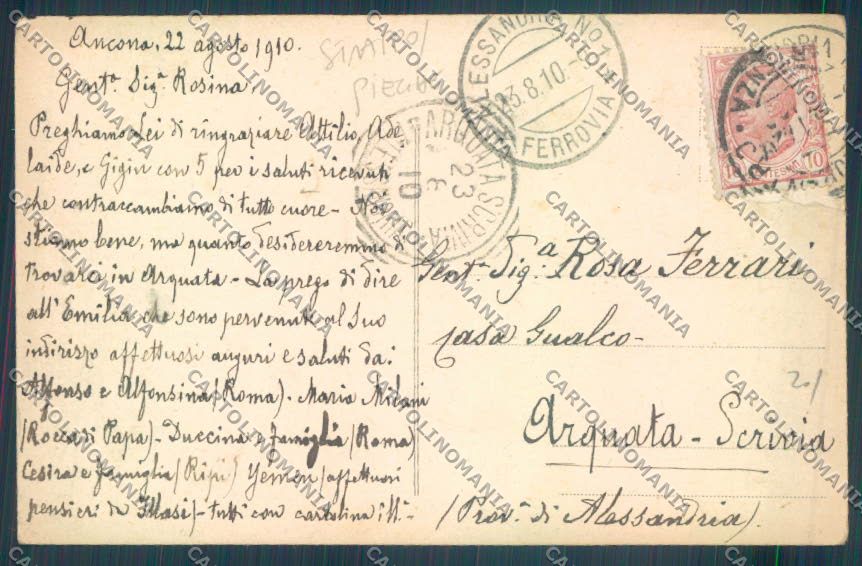 Ancona, 22 agosto 1910.
Gentᵃ. Sigᵃ. Rosina,
Preghiamo Lei di ringraziare Attilio, Ade
laide, e Gigin con 5 per i saluti ricevuti
che contraccambiamo di tutto cuore - Noi
stiamo bene, ma quanto desidereremmo di
trovarci in Arquata - La prego di dire
all'Emilia che sono pervenuti al suo
indirizzo affettuosi auguri e saluti da:
Alfonso e Alfonsina (Roma). Maria Milani
(Rocca di Papa) - Duccina e famiglia (Roma)
Cesira e famiglia (Ripi) Yemen (affettuosi
pensieri da Massi) - tutti con cartolina ill.-
ALESSANDRIA No 1
23.8.10
FERROVIA
ARQUATA SCRIVIA
23
8
10
Gentᵃ. Sigᵃ. Rosa Ferrari
Casa Gualco -
Arquata - Scrivia
(Provᵃ. di Alessandria).
20/
CARTOLINOMANIA